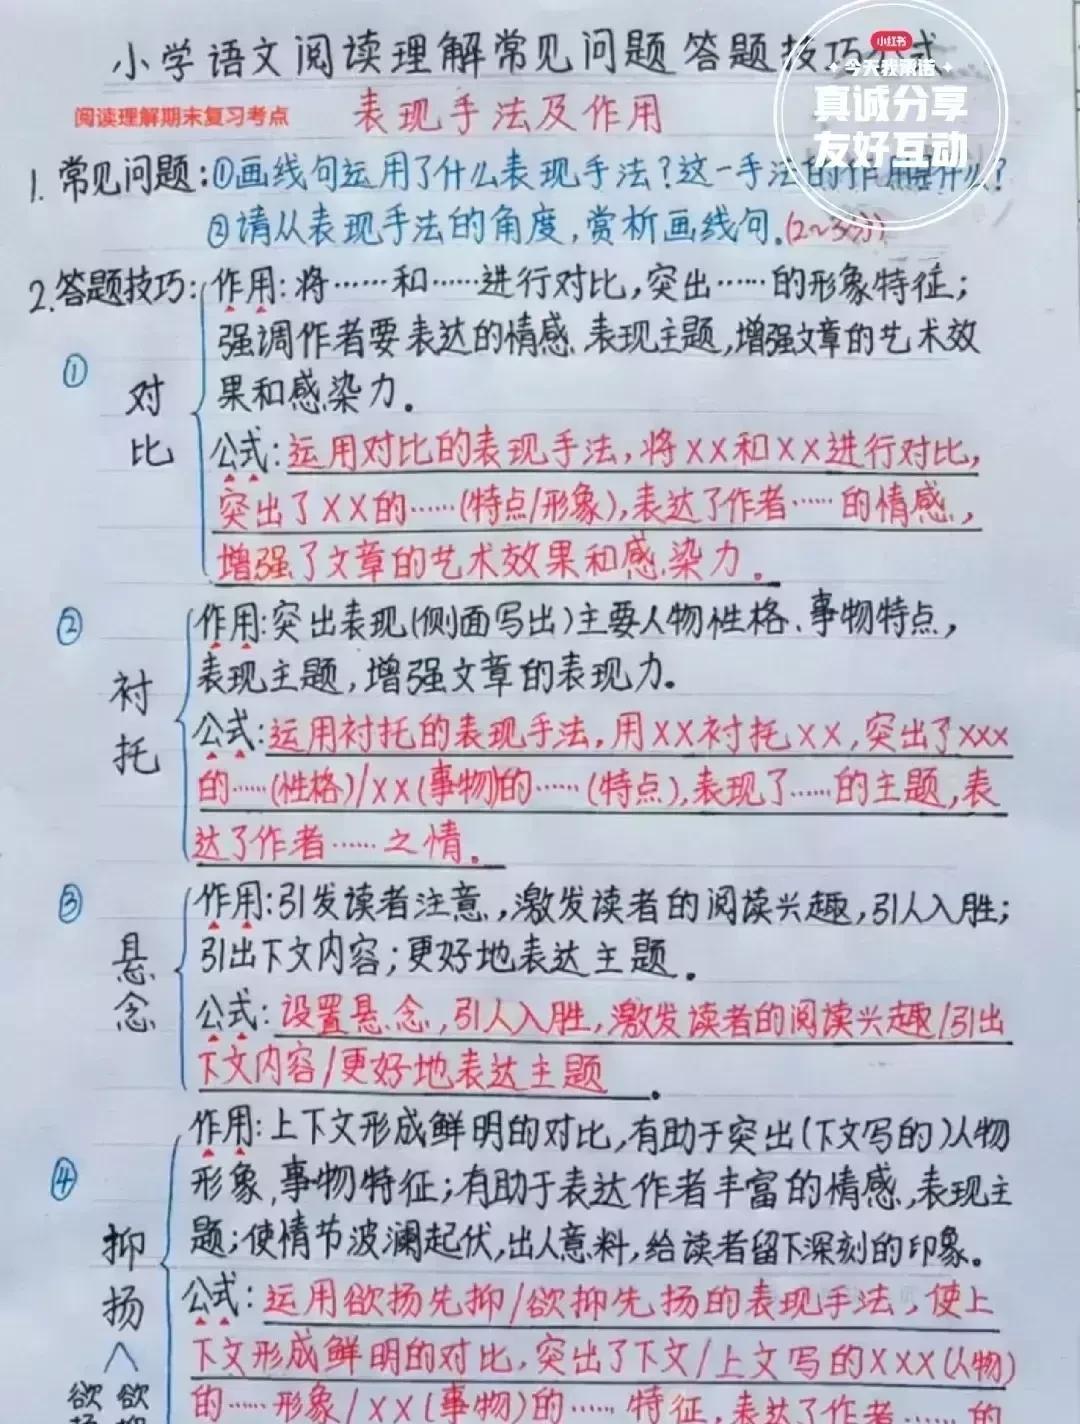 小学语文阅读理解常见问题答题技巧公式
小红书
今天我承诺
真诚分享
友好互动
阅读理解期末复习考点
表现手法及作用
1.常见问题:①画线句运用了什么表现手法?这一手法的作用是什么?
②请从表现手法的角度,赏析画线句.(2~3分)
2.答题技巧:
①
对比
作用:将……和……进行对比,突出……的形象特征;
强调作者要表达的情感、表现主题,增强文章的艺术效
果和感染力。
公式:运用对比的表现手法,将XX和XX进行对比,
突出了XX的……(特点/形象),表达了作者……的情感,
增强了文章的艺术效果和感染力。
②
衬托
作用:突出表现(侧面写出)主要人物性格、事物特点,
表现主题,增强文章的表现力。
公式:运用衬托的表现手法,用XX衬托XX,突出了XXX
的……(性格)/XX(事物)的……(特点),表现了……的主题,表
达了作者……之情。
③
悬念
作用:引发读者注意,激发读者的阅读兴趣,引人入胜;
引出下文内容;更好地表达主题。
公式:设置悬念,引人入胜,激发读者的阅读兴趣/引出
下文内容/更好地表达主题。
④
抑扬
作用:上下文形成鲜明的对比,有助于突出(下文写的)人物
形象,事物特征;有助于表达作者丰富的情感,表现主
题;使情节波澜起伏,出人意料,给读者留下深刻的印象。
公式:运用欲扬先抑/欲抑先扬的表现手法,使上
下文形成鲜明的对比,突出了下文/上文写的XXX(人物)
的……形象/XX(事物)的……特征,表达了作者……的
欲 欲